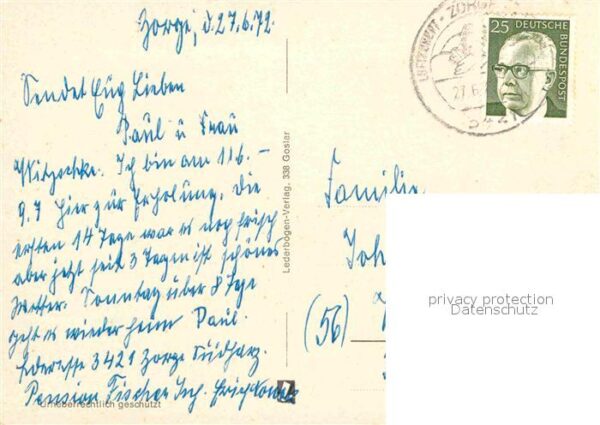 Zorge, d. 27.6.72.
Sendet Eug Lieben
Paul u Frau
Witzschke. Ich bin am 11.6. –
9.7 hier zur Erholung, die
ersten 14 Tage war es noch frisch
aber jetzt seit 3 Tagen ist schönes
Wetter. Sonntag über 8 Tage
geht es wieder heim Paul.
Aderesse 3421 Zorge Südharz.
Pension Fischer Inh. Erich
Urheberrechtlich geschützt
Lederbogen-Verlag, 338 Goslar
ZORGE
27.6.
3421
25
DEUTSCHE
BUNDESPOST
Familie
Joh
(56)
privacy protection
Datenschutz